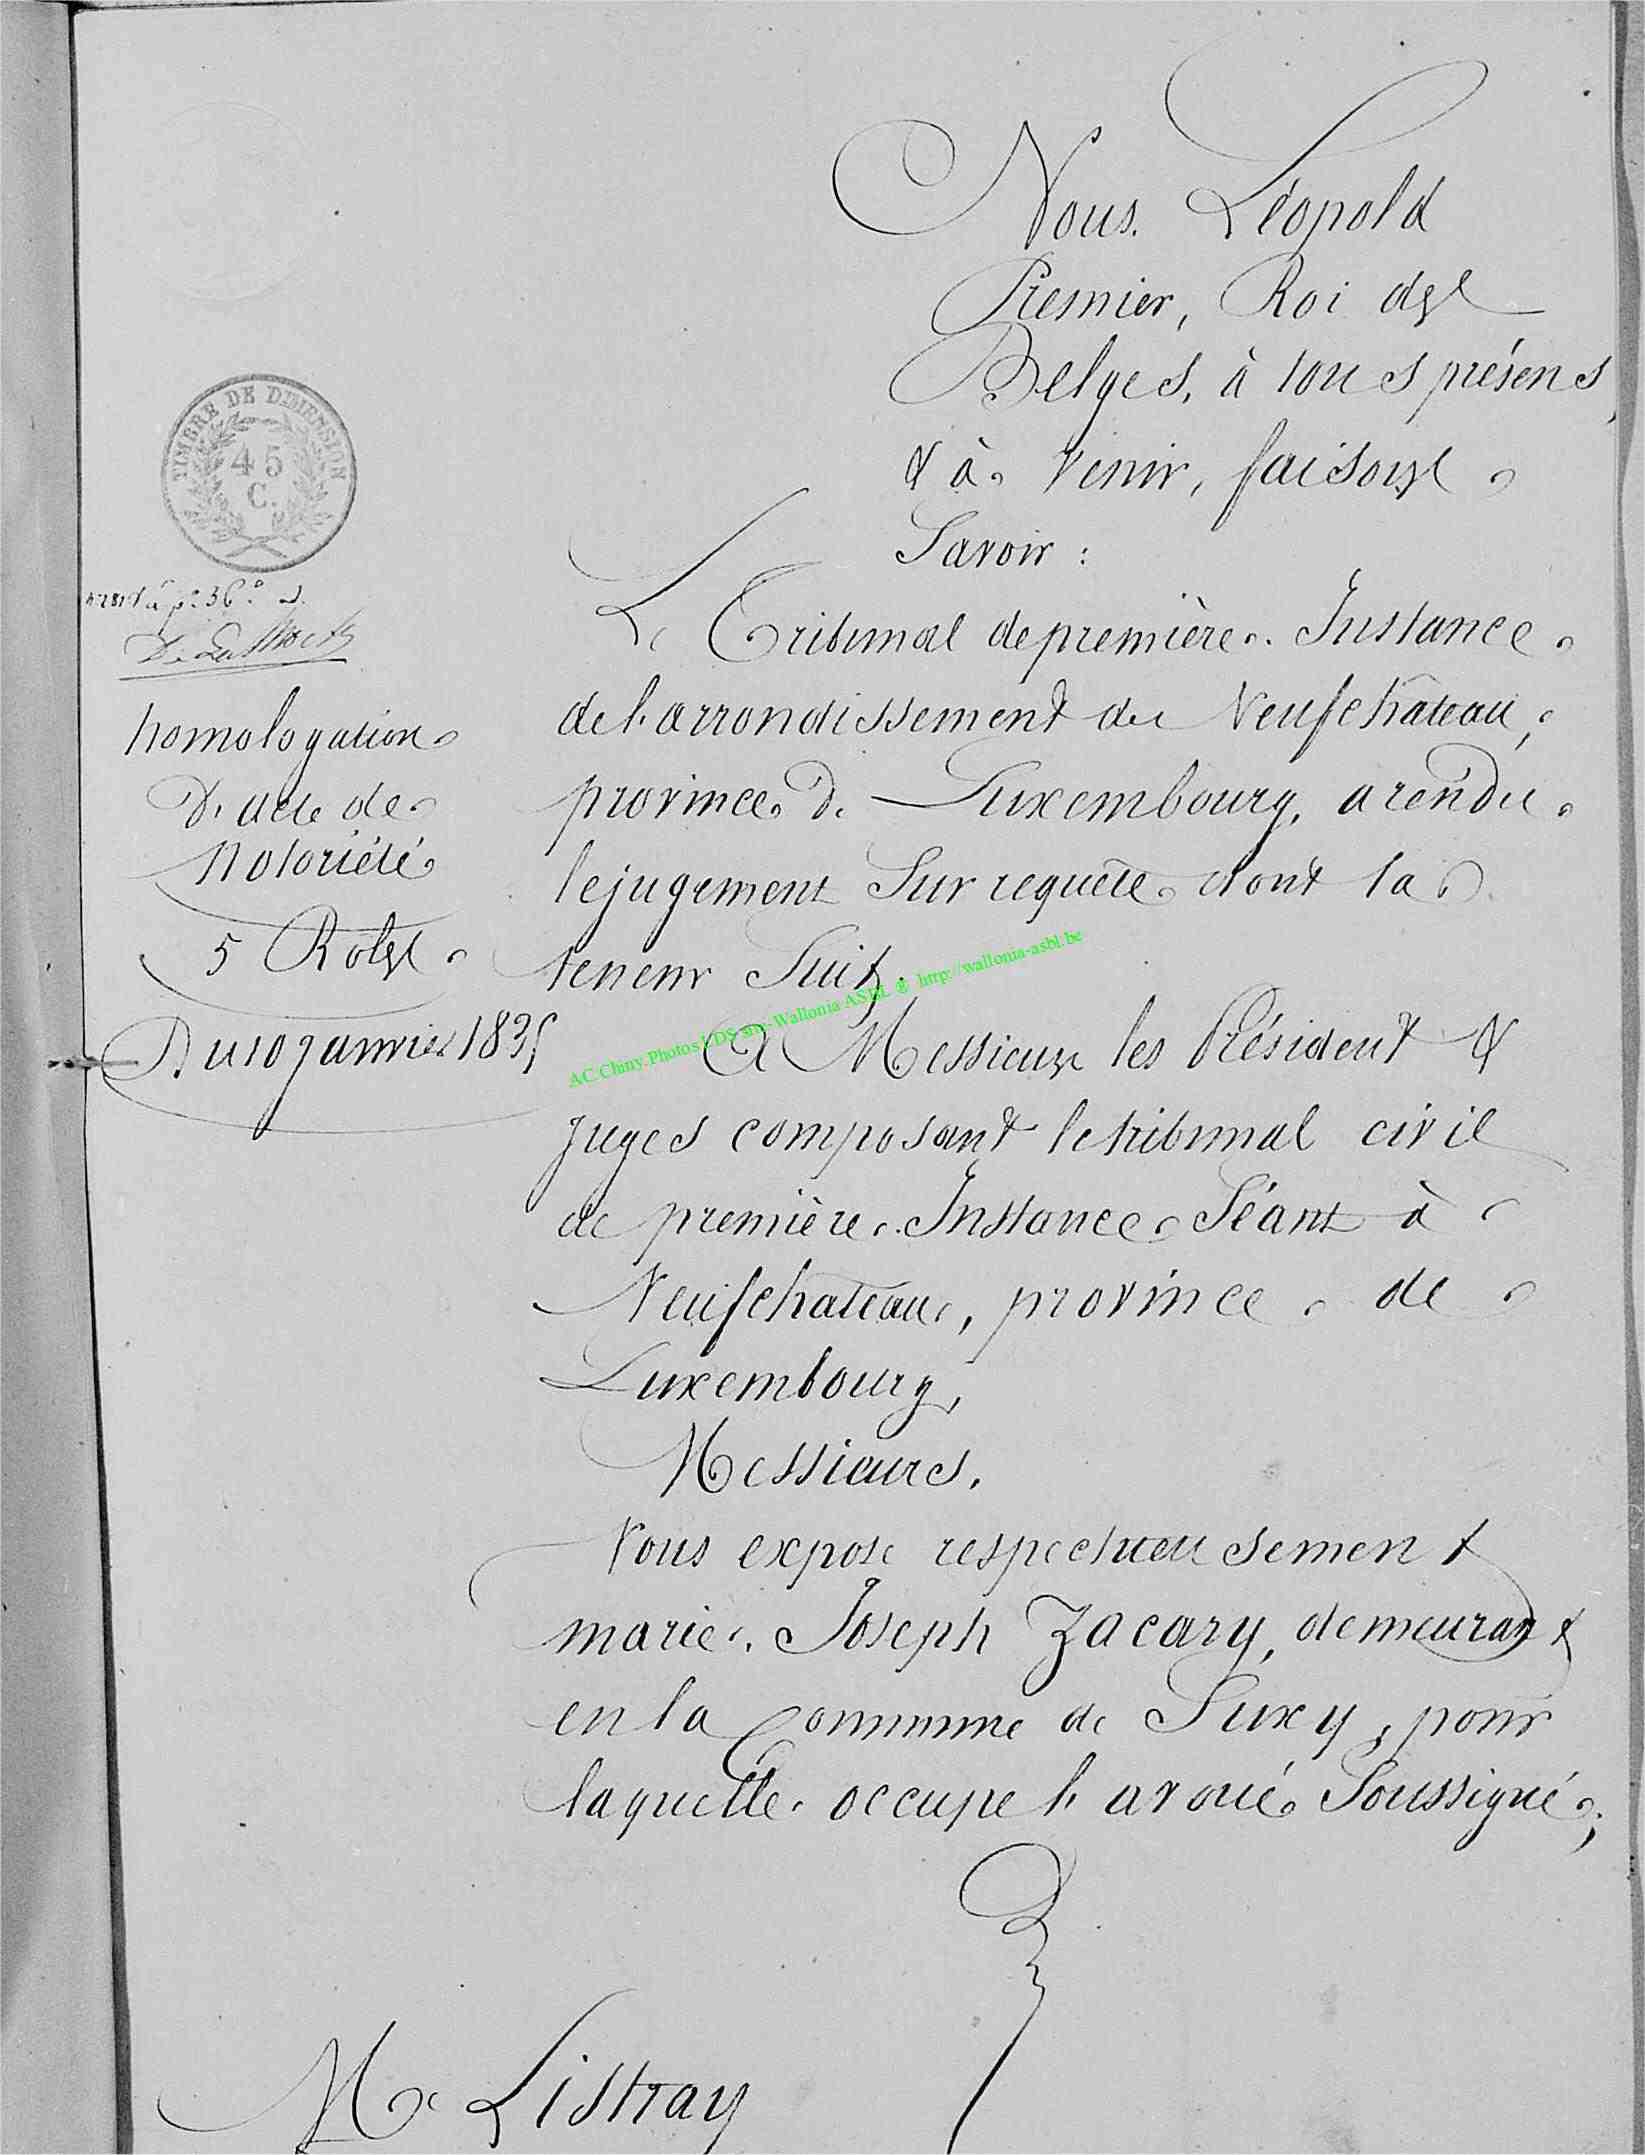 Nous Léopold
Premier, Roi des
Belges, à tous présens
& à venir, faisons
Savoir :
TIMBRE DE DIMENSION
45
C.
Le Tribunal de première Instance
de l'arrondissement de Neufchâteau,
province de Luxembourg, a rendu
le jugement Sur requête dont la
teneur Suit.
homologation
d'acte de
Notoriété
5 Roles
Du 10 Janvier 1835
A Messieurs les Président &
Juges composant le tribunal civil
de première Instance Séant à
Neufchateau, province de
Luxembourg,
Messieurs,
Vous expose respectueusement
marie Joseph Zacary, demeurant
en la Commune de Suxy, pour
laquelle occupe l'avoué Soussigné;
Me Listray
AC.Chiny.Photos LDS sur-Wallonia ASBL ® http://wallonia-asbl.be